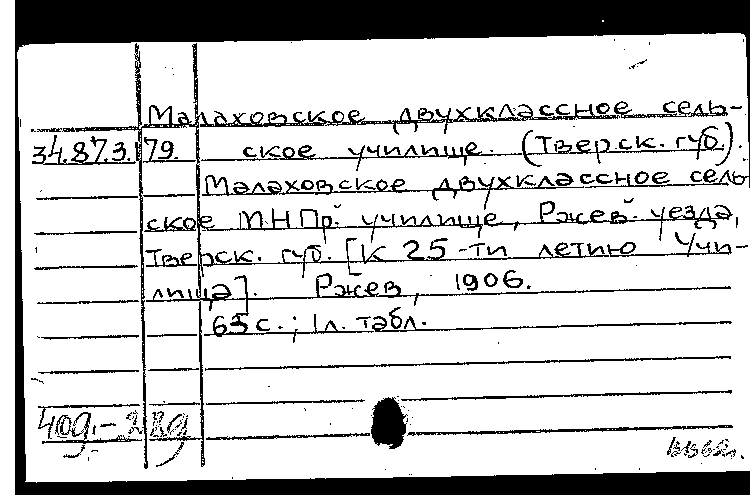 Малаховское двухклассное сель-
34.87.3.179. ское училище. (Тверск. губ.).
Малаховское двухклассное сель
ское М.Н.Пр. училище, Ржев. уезда,
Тверск. губ. [К 25-ти летию Учи-
лища]. Ржев, 1906.
63 с.; 1 л. табл.